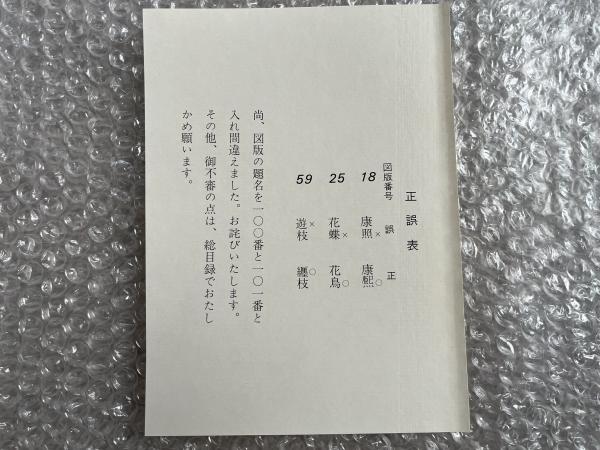 正誤表
図版番号 誤 正
18 康照× 康熙○
25 花蝶× 花鳥○
59 遊枝× 纏枝○
尚、図版の題名を一〇〇番と一〇一番と
入れ間違えました。お詫びいたします。
その他、御不審の点は、総目録でおたし
かめ願います。